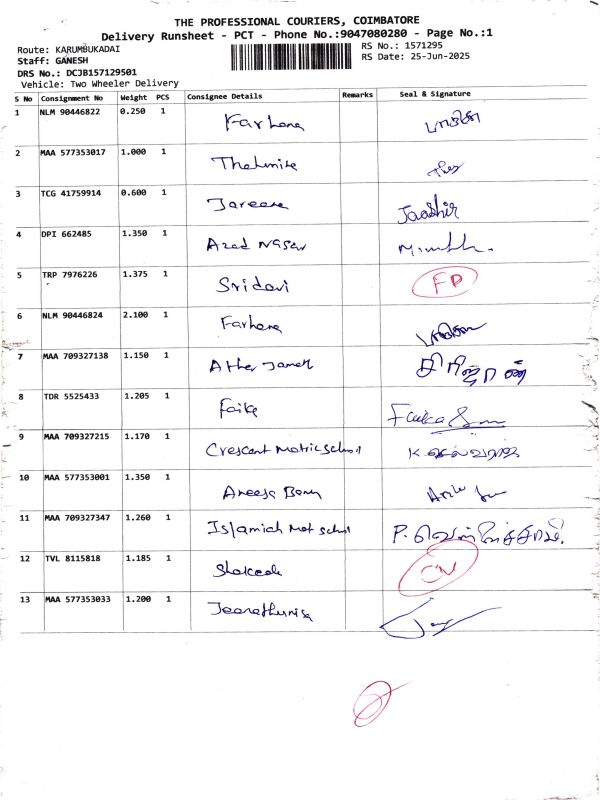 THE PROFESSIONAL COURIERS, COIMBATORE
Delivery Runsheet - PCT - Phone No.:9047080280 - Page No.:1
Route: KARUMBUKADAI
RS No.: 1571295
Staff: GANESH
RS Date: 25-Jun-2025
DRS No.: DCJB157129501
Vehicle: Two Wheeler Delivery
S No Consignment No Weight PCS Consignee Details Remarks Seal & Signature
1 NLM 90446822 0.250 1 Farhana
2 MAA 577353017 1.000 1
3 TCG 41759914 0.600 1 Jareena Jaashir
4 DPI 662485 1.350 1 Azad Nagar
5 TRP 7976226 1.375 1 Sridevi FP
6 NLM 90446824 2.100 1 Farhana
7 MAA 709327138 1.150 1 Ather Jameel
8 TDR 5525433 1.205 1 Faika
9 MAA 709327215 1.170 1 Crescent Matric School
10 MAA 577353001 1.350 1 Aneesa Banu
11 MAA 709327347 1.260 1 Islamiah Mat School
12 TVL 8115818 1.185 1
13 MAA 577353033 1.200 1